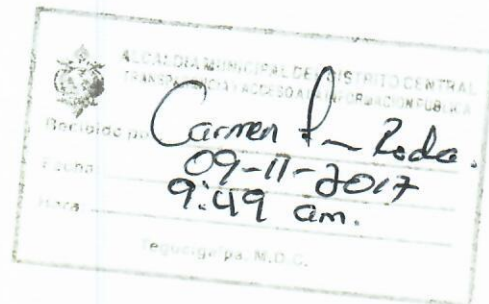 ALCALDIA MUNICIPAL DEL DISTRITO CENTRAL
TRANSPARENCIA Y ACCESO A LA INFORMACION PUBLICA
Recibido por Carmen
Fecha 09-11-2017
Hora 9:49 am.
Tegucigalpa, M.D.C.